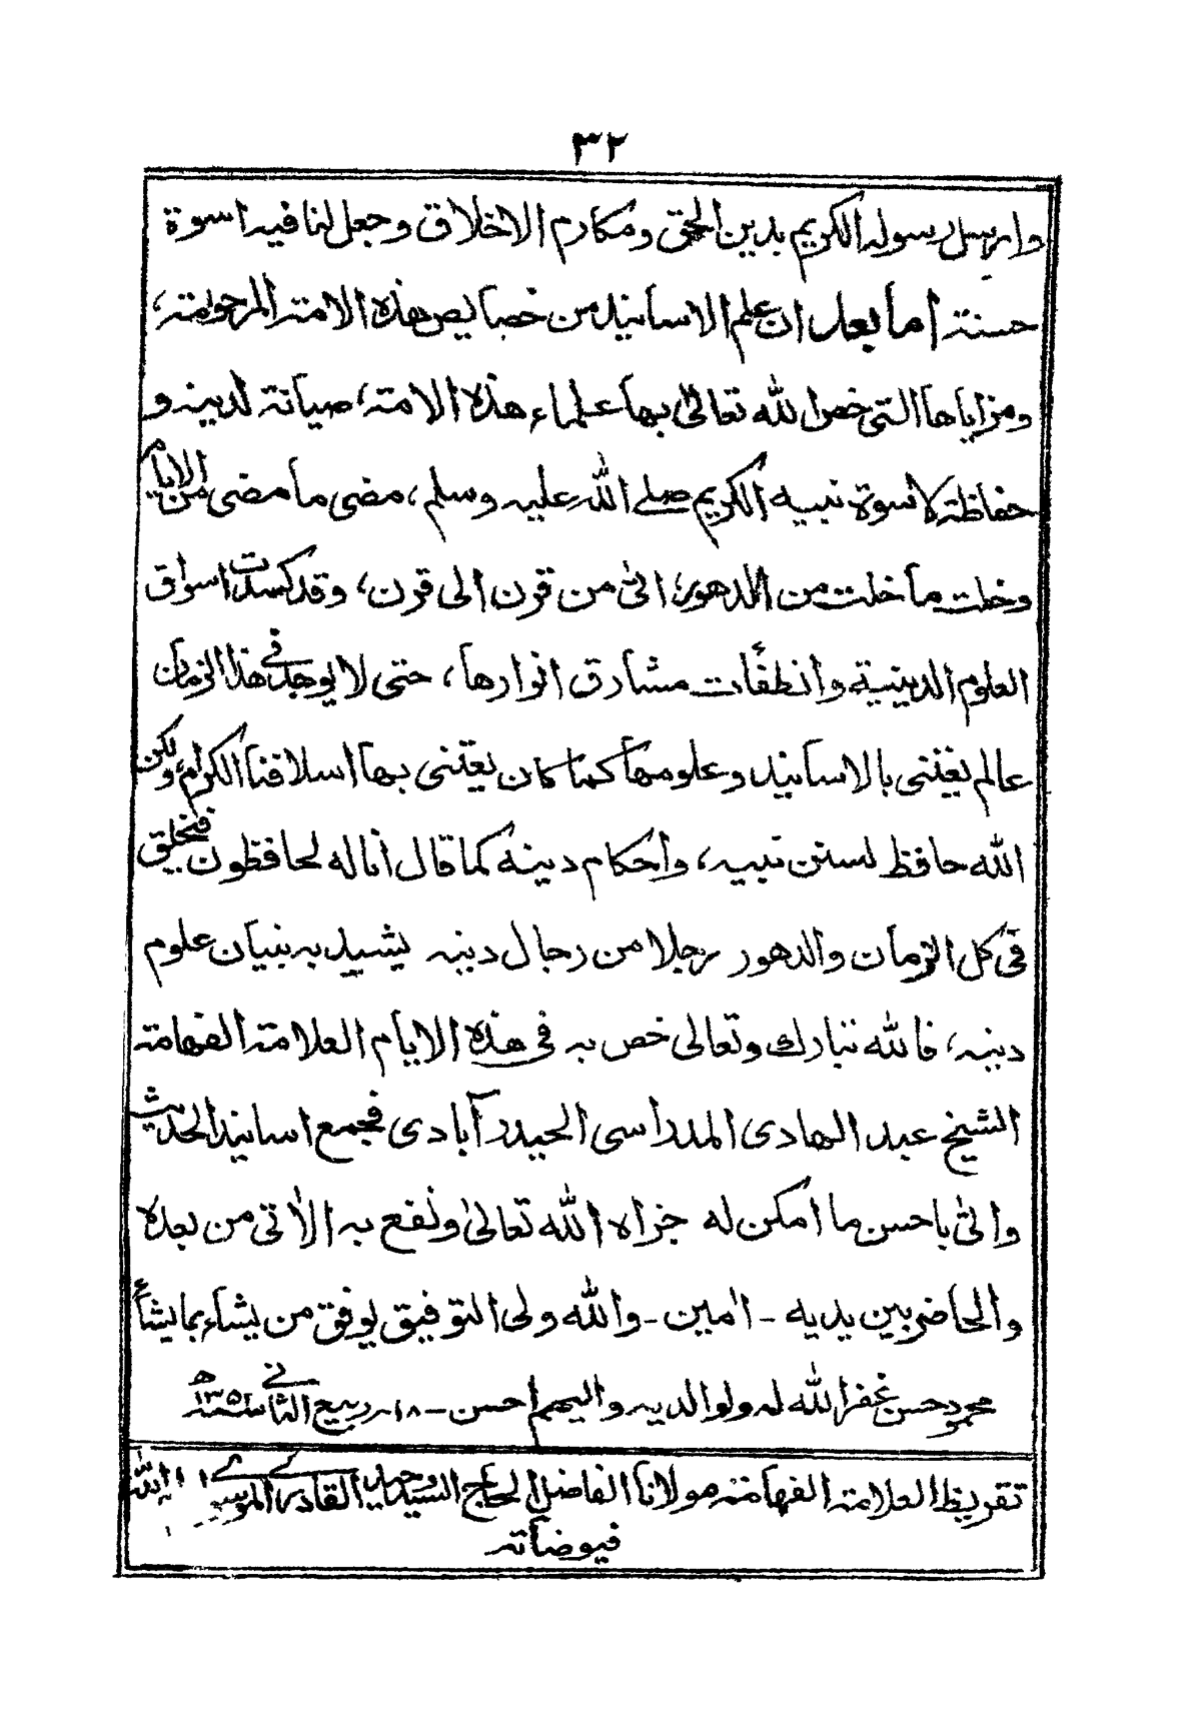 ٣٢
وارسل رسوله الكريم بدين الحق ومكارم الاخلاق وجعل لنا فيه اسوة
حسنة اما بعد ان علم الاسانيد من خصايص هذه الامة المرحومة،
ومزاياها التى خص الله تعالىٰ بها علماء هذه الامة، صيانة لدينه و
حفاظة لاسوة نبيه الكريم صلے الله عليه وسلم، مضى ما مضى من الايام
وخلت ما خلت من الدهور، الىٰ من قرن الى قرن، وقد كسدت اسواق
العلوم الدينية وانطفأت مشارق انوارها، حتى لا يوجد فى هذا الزمان
عالم يعتنى بالاسانيد وعلومها كما كان يعتنى بها اسلافنا الكرام، ولكن
الله حافظ لسنن نبيه، واحكام دينه كما قال انا له لحافظون فيخلق
فى كل الزمان والدهور رجلا من رجال دينه يشيد به بنيان علوم
دينه، فالله تبارك وتعالى خص به فى هذه الايام العلامة الفهامة
الشيخ عبد الهادى المدراسى الحيدرآبادى فجمع اسانيد الحديث
واتىٰ باحسن ما امكن له جزاه الله تعالىٰ ونفع به الاٰتى من بعده
والحاضر بين يديه ـ اٰمين ـ والله ولى التوفيق يوفق من يشاء بما يشأ
محمود حسن غفر الله له ولوالديه واليهم احسن ـ ١٨ ربيع الثانى
تقريظ العلامة الفهامة مولانا الفاضل الحاج السيد وحيد القادرى
فيوضاته